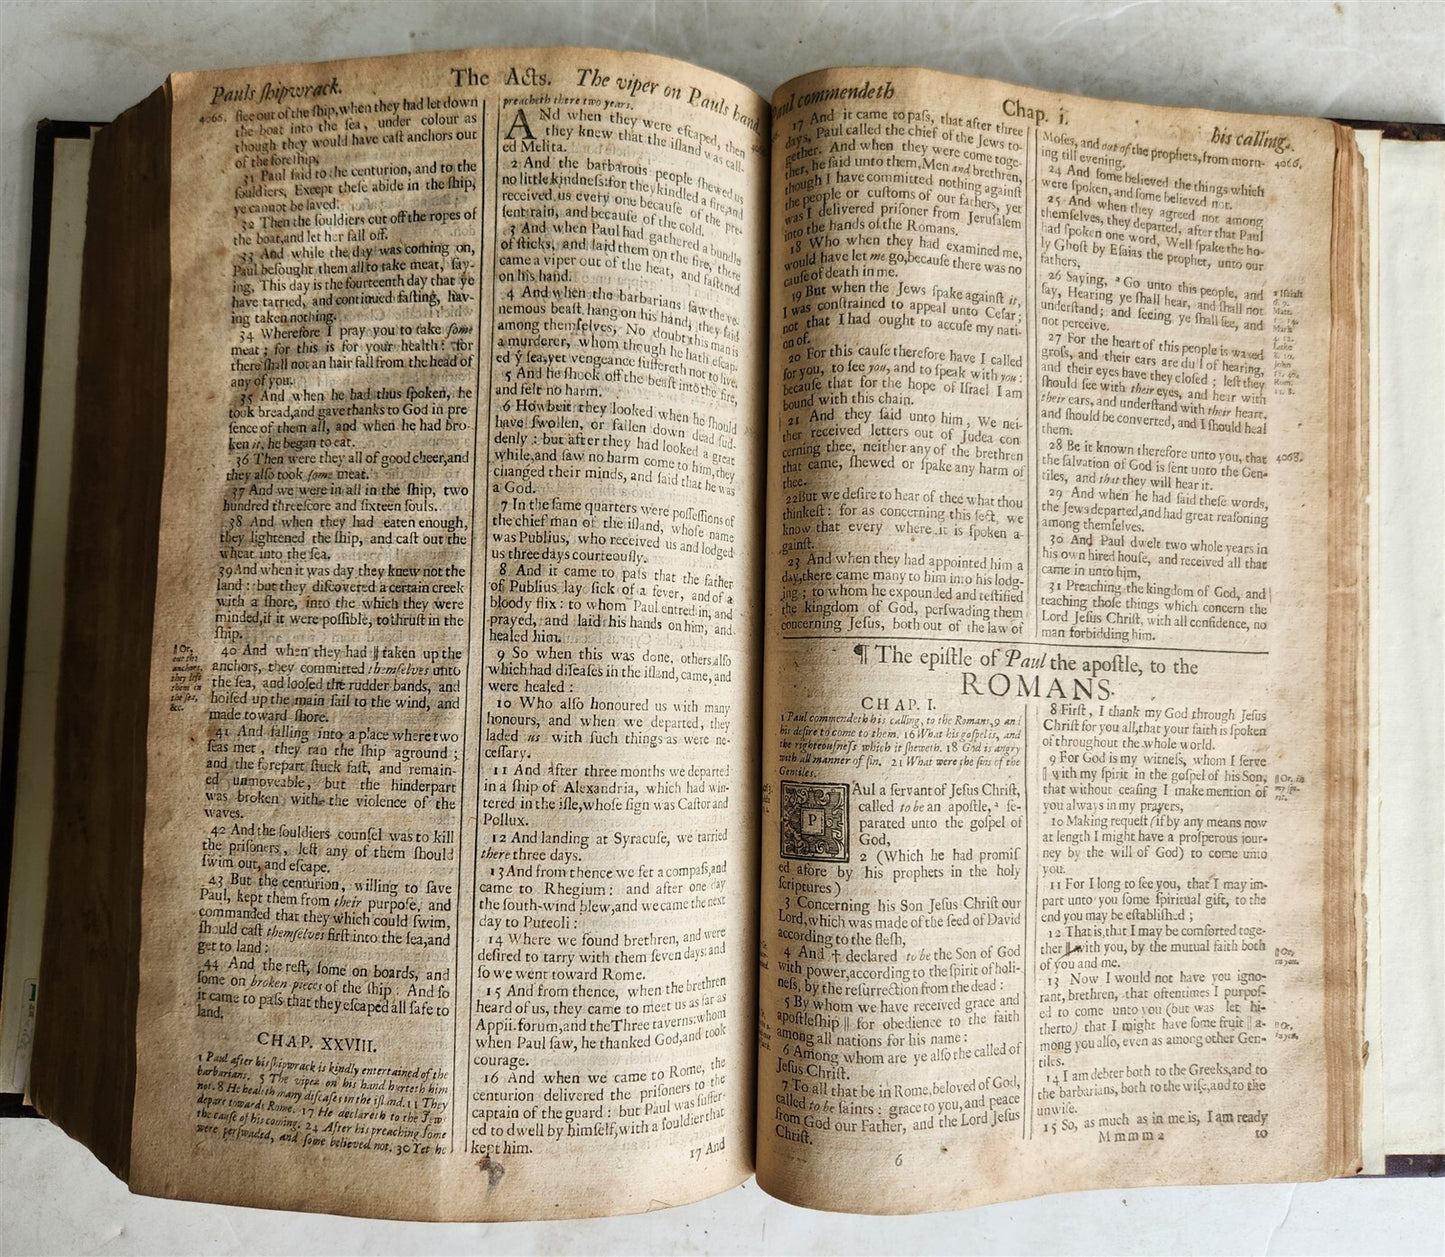 Pauls ſhipwrack.
The Acts.
The viper on Pauls hand.
4066.
flee out of the ſhip, when they had let down
the boat into the ſea, under colour as
though they would have caſt anchors out
of the foreſhip,
31 Paul ſaid to the centurion, and to the
ſouldiers, Except theſe abide in the ſhip,
ye cannot be ſaved.
32 Then the ſouldiers cut off the ropes of
the boat, and let her fall off.
33 And while the day was coming on,
Paul beſought them all to take meat, ſay-
ing, This day is the fourteenth day that ye
have tarried, and continued faſting, hav-
ing taken nothing.
34 Wherefore I pray you to take ſome
meat; for this is for your health: for
there ſhall not an hair fall from the head of
any of you.
35 And when he had thus ſpoken, he
took bread, and gave thanks to God in pre
ſence of them all, and when he had bro-
ken it, he began to eat.
36 Then were they all of good cheer, and
they alſo took ſome meat.
37 And we were in all in the ſhip, two
hundred threeſcore and ſixteen ſouls.
38 And when they had eaten enough,
they lightened the ſhip, and caſt out the
wheat into the ſea.
39 And when it was day they knew not the
land: but they diſcovered a certain creek
with a ſhore, into the which they were
minded, if it were poſſible, to thruſt in the
ſhip.
40 And when they had || taken up the
anchors, they committed themſelves unto
the ſea, and looſed the rudder bands, and
hoiſed up the main ſail to the wind, and
made toward ſhore.
41 And falling into a place where two
ſeas met, they ran the ſhip aground;
and the forepart ſtuck faſt, and remain-
ed unmoveable, but the hinderpart
was broken with the violence of the
waves.
42 And the ſouldiers counſel was to kill
the priſoners, leſt any of them ſhould
ſwim out, and eſcape.
43 But the centurion, willing to ſave
Paul, kept them from their purpoſe, and
commanded that they which could ſwim,
ſhould caſt themſelves firſt into the ſea, and
get to land:
44 And the reſt, ſome on boards, and
ſome on broken pieces of the ſhip: And ſo
it came to paſs that they eſcaped all ſafe to
land.
|| Or,
cut the
anchors,
they left
them in
the ſea,
&c.
CHAP. XXVIII.
1 Paul after his ſhipwrack is kindly entertained of the
barbarians. 5 The viper on his hand hurteth him
not. 8 He healeth many diſeaſes in the iſland. 11 They
depart towards Rome. 17 He declareth to the Jews
the cauſe of his coming. 24 After his preaching ſome
were perſwaded, and ſome believed not. 30 Yet he
preacheth there two years.
ANd when they were eſcaped, then
they knew that the iſland was call-
ed Melita.
2 And the barbarous people ſhewed us
no little kindneſs: for they kindled a fire, and
received us every one becauſe of the pre-
ſent rain, and becauſe of the cold.
3 And when Paul had gathered a bundle
of ſticks, and laid them on the fire, there
came a viper out of the heat, and faſtened
on his hand.
4 And when the barbarians ſaw the ve-
nemous beaſt hang on his hand, they ſaid
among themſelves, No doubt this man is
a murderer, whom though he hath eſcap-
ed ẙ ſea, yet vengeance ſuffereth not to live.
5 And he ſhook off the beaſt into the fire,
and felt no harm.
6 Howbeit they looked when he ſhould
have ſwollen, or fallen down dead ſud-
denly: but after they had looked a great
while, and ſaw no harm come to him, they
changed their minds, and ſaid that he was
a God.
7 In the ſame quarters were poſſeſſions of
the chief man of the iſland, whoſe name
was Publius, who received us and lodged
us three days courteouſly.
8 And it came to paſs that the father
of Publius lay ſick of a fever, and of a
bloody flix: to whom Paul entred in, and
prayed, and laid his hands on him, and
healed him.
9 So when this was done, others alſo
which had diſeaſes in the iſland, came, and
were healed:
10 Who alſo honoured us with many
honours, and when we departed, they
laded us with ſuch things as were ne-
ceſſary.
11 And after three months we departed
in a ſhip of Alexandria, which had win-
tered in the iſle, whoſe ſign was Caſtor and
Pollux.
12 And landing at Syracuſe, we tarried
there three days.
13 And from thence we ſet a compaſs, and
came to Rhegium: and after one day
the ſouth-wind blew, and we came the next
day to Puteoli:
14 Where we found brethren, and were
deſired to tarry with them ſeven days: and
ſo we went toward Rome.
15 And from thence, when the brethren
heard of us, they came to meet us as far as
Appii-forum, and the Three taverns: whom
when Paul ſaw, he thanked God, and took
courage.
16 And when we came to Rome, the
centurion delivered the priſoners to the
captain of the guard: but Paul was ſuffer-
ed to dwell by himſelf, with a ſouldier that
kept him.
17 And
Paul commendeth
Chap. i.
his calling.
17 And it came to paſs, that after three
days, Paul called the chief of the Jews to-
gether. And when they were come toge-
ther, he ſaid unto them, Men and brethren,
though I have committed nothing againſt
the people or cuſtoms of our fathers, yet
was I delivered priſoner from Jeruſalem
into the hands of the Romans.
18 Who when they had examined me,
would have let me go, becauſe there was no
cauſe of death in me.
19 But when the Jews ſpake againſt it,
I was conſtrained to appeal unto Ceſar;
not that I had ought to accuſe my nati-
on of.
20 For this cauſe therefore have I called
for you, to ſee you, and to ſpeak with you:
becauſe that for the hope of Iſrael I am
bound with this chain.
21 And they ſaid unto him, We nei-
ther received letters out of Judea con
cerning thee, neither any of the brethren
that came, ſhewed or ſpake any harm of
thee.
22 But we deſire to hear of thee what thou
thinkeſt: for as concerning this ſect, we
know that every where it is ſpoken a-
gainſt.
23 And when they had appointed him a
day, there came many to him into his lodg-
ing; to whom he expounded and teſtified
the kingdom of God, perſwading them
concerning Jeſus, both out of the law of
Moſes, and out of the prophets, from morn-
ing till evening.
4066.
24 And ſome believed the things which
were ſpoken, and ſome believed not.
25 And when they agreed not among
themſelves, they departed, after that Paul
had ſpoken one word, Well ſpake the ho-
ly Ghoſt by Eſaias the prophet, unto our
fathers,
26 Saying, ᵃ Go unto this people, and
ſay, Hearing ye ſhall hear, and ſhall not
underſtand; and ſeeing ye ſhall ſee, and
not perceive.
27 For the heart of this people is waxed
groſs, and their ears are dull of hearing,
and their eyes have they cloſed; leſt they
ſhould ſee with their eyes, and hear with
their ears, and underſtand with their heart,
and ſhould be converted, and I ſhould heal
them.
28 Be it known therefore unto you, that
the ſalvation of God is ſent unto the Gen-
tiles, and that they will hear it.
4068.
29 And when he had ſaid theſe words,
the Jews departed, and had great reaſoning
among themſelves.
30 And Paul dwelt two whole years in
his own hired houſe, and received all that
came in unto him,
31 Preaching the kingdom of God, and
teaching thoſe things which concern the
Lord Jeſus Chriſt, with all confidence, no
man forbidding him.
¶ The epiſtle of Paul the apoſtle, to the
ROMANS.
CHAP. I.
1 Paul commendeth his calling, to the Romans, 9 and
his deſire to come to them. 16 What his goſpel is, and
the righteouſneſs which it ſheweth. 18 God is angry
with all manner of ſin. 21 What were the ſins of the
Gentiles.
PAul a ſervant of Jeſus Chriſt,
called to be an apoſtle, ᵃ ſe-
parated unto the goſpel of
God,
2 (Which he had promiſ
ed afore by his prophets in the holy
ſcriptures)
3 Concerning his Son Jeſus Chriſt our
Lord, which was made of the ſeed of David
according to the fleſh,
4 And † declared to be the Son of God
with power, according to the ſpirit of holi-
neſs, by the reſurrection from the dead:
5 By whom we have received grace and
apoſtleſhip || for obedience to the faith
among all nations for his name:
6 Among whom are ye alſo the called of
Jeſus Chriſt.
7 To all that be in Rome, beloved of God,
called to be ſaints: grace to you, and peace
from God our Father, and the Lord Jeſus
Chriſt.
8 Firſt, I thank my God through Jeſus
Chriſt for you all, that your faith is ſpoken
of throughout the whole world.
9 For God is my witneſs, whom I ſerve
|| with my ſpirit in the goſpel of his Son,
that without ceaſing I make mention of
you always in my prayers,
|| Or, in
my ſpi-
rit.
10 Making requeſt (if by any means now
at length I might have a proſperous jour-
ney by the will of God) to come unto
you.
11 For I long to ſee you, that I may im-
part unto you ſome ſpiritual gift, to the
end you may be eſtabliſhed;
12 That is, that I may be comforted toge-
ther || with you, by the mutual faith both
of you and me.
|| Or,
in you.
13 Now I would not have you igno-
rant, brethren, that oftentimes I purpoſ-
ed to come unto you (but was let hi-
therto) that I might have ſome fruit || a-
mong you alſo, even as among other Gen-
tiles.
|| Or,
in you.
14 I am debter both to the Greeks, and to
the barbarians, both to the wiſe, and to the
unwiſe.
15 So, as much as in me is, I am ready
Mmmm 2
to
6